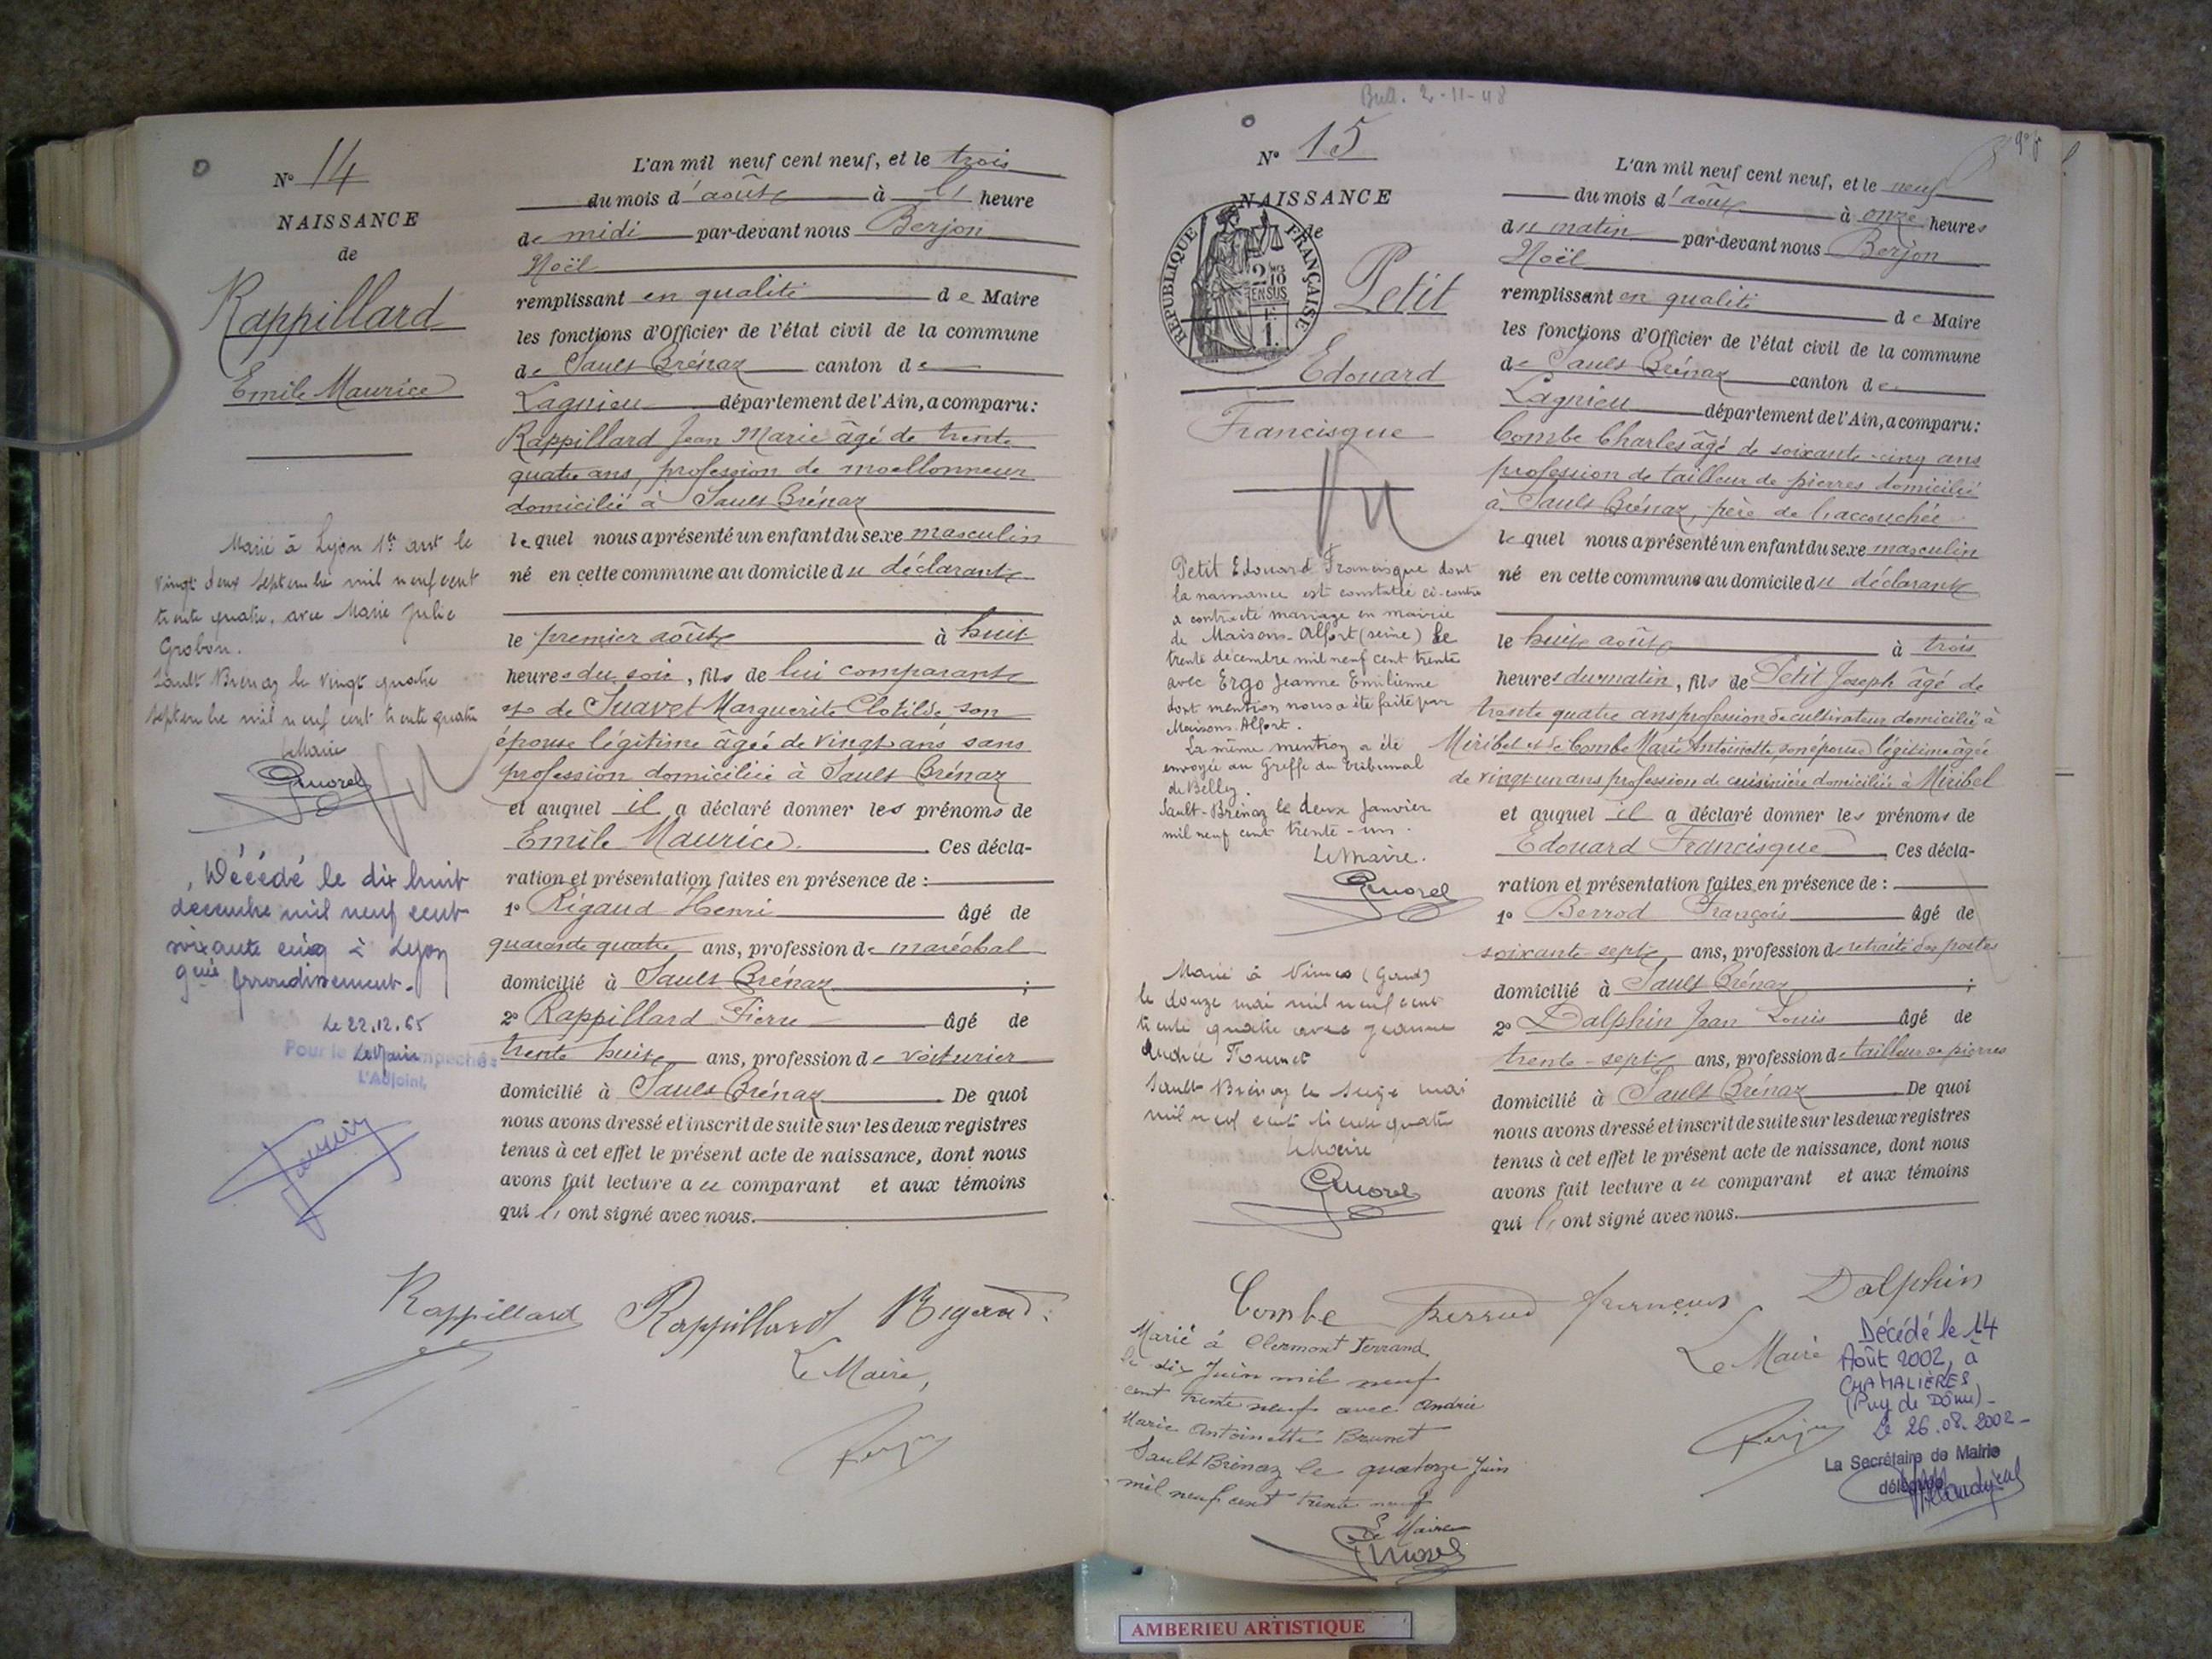 N° 14
NAISSANCE
de
Rappillard
Emile Maurice
Marié à Lyon 1er arrt le
vingt deux septembre mil neuf cent
trente quatre, avec Marie Julie
Grobon.
Sault Brénaz le vingt quatre
septembre mil neuf cent trente quatre
le Maire
Décédé le dix huit
decembre mil neuf cent
soixante cinq à Lyon
Arrondissement.
Le 22.12.65
Le Maire
Pour le Maire empêché
L'Adjoint,
L'an mil neuf cent neuf, et le trois
du mois d'août à heure
de midi par-devant nous Berjon
Noël
remplissant en qualité de Maire
les fonctions d'Officier de l'état civil de la commune
de Sault Brénaz canton de
Lagnieu département de l'Ain, a comparu:
Rappillard Jean Marie âgé de trente
quatre ans, profession de moellonneur
domicilié à Sault Brénaz
lequel nous a présenté un enfant du sexe masculin
né en cette commune au domicile du déclarant
le premier août à huit
heures du soir, fils de lui comparant
et de Juavet Marguerite Clotilde, son
épouse légitime âgée de vingt ans sans
profession domiciliée à Sault Brénaz
et auquel il a déclaré donner les prénoms de
Emile Maurice. Ces décla-
ration et présentation faites en présence de :
1° Rigaud Henri âgé de
quarante quatre ans, profession de maréchal
domicilié à Sault Brénaz ;
2° Rappillard Pierre âgé de
trente huit ans, profession de voiturier
domicilié à Sault Brénaz De quoi
nous avons dressé et inscrit de suite sur les deux registres
tenus à cet effet le présent acte de naissance, dont nous
avons fait lecture au comparant et aux témoins
qui ont signé avec nous.
Rappillard Rappillard Rigaud
Le Maire,
Bull. 2-11-48
N° 15
NAISSANCE
de
REPUBLIQUE FRANÇAISE
Petit
Edouard
Francisque
Petit Edouard Francisque dont
la naissance est constatée ci-contre
a contracté mariage en mairie
de Maisons-Alfort (seine) le
trente décembre mil neuf cent trente
avec Ergo Jeanne Emilienne
dont mention nous a été faite par
Maisons Alfort.
La même mention a été
envoyée au Greffe du Tribunal
de Belley.
Sault-Brénaz le deux Janvier
mil neuf cent trente-un.
Le Maire.
Marié à
le douze mai mil neuf cent
trente quatre avec Jeanne
Andrée
Sault Brénaz le seize mai
mil neuf cent trente quatre
le Maire
L'an mil neuf cent neuf, et le neuf
du mois d'août à onze heures
du matin par-devant nous Berjon
Noël
remplissant en qualité de Maire
les fonctions d'Officier de l'état civil de la commune
de Sault Brénaz canton de
Lagnieu département de l'Ain, a comparu:
Combe Charles âgé de soixante-cinq ans
profession de tailleur de pierres domicilié
à Sault Brénaz, père de l'accouchée
lequel nous a présenté un enfant du sexe masculin
né en cette commune au domicile du déclarant
le huit août à trois
heures du matin, fils de Petit Joseph âgé de
trente quatre ans profession de cultivateur domicilié à
Miribel et de Combe Marie Antoinette, son épouse légitime âgée
de vingt un ans profession de cuisinière domiciliée à Miribel
et auquel il a déclaré donner les prénoms de
Edouard Francisque Ces décla-
ration et présentation faites en présence de :
1° Berrod François âgé de
soixante-sept ans, profession de retraité des postes
domicilié à Sault Brénaz ;
2° Dalphin Jean Louis âgé de
trente-sept ans, profession de tailleur de pierres
domicilié à Sault Brénaz De quoi
nous avons dressé et inscrit de suite sur les deux registres
tenus à cet effet le présent acte de naissance, dont nous
avons fait lecture au comparant et aux témoins
qui ont signé avec nous.
Combe Berrod françois Dalphin
Le Maire
Marié à Clermont Ferrand
le dix Juin mil neuf
cent trente neuf avec Andrée
Marie Antoinette Brunet
Sault Brénaz le quatorze Juin
mil neuf cent trente neuf
Le Maire
Décédé le 14
Août 2002, à
CHAMALIÈRES
(Puy de Dôme)-
Le 26.08.2002-
La Secrétaire de Mairie
AMBERIEU ARTISTIQUE